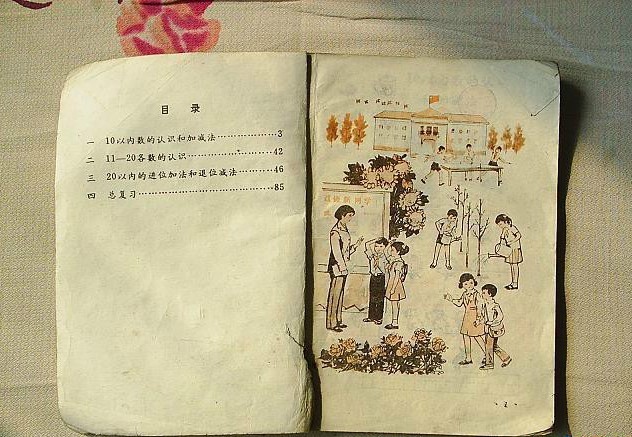 目 录
一 10以内数的认识和加减法……………3
二 11—20各数的认识……………………42
三 20以内的进位加法和退位减法………46
四 总复习…………………………………85